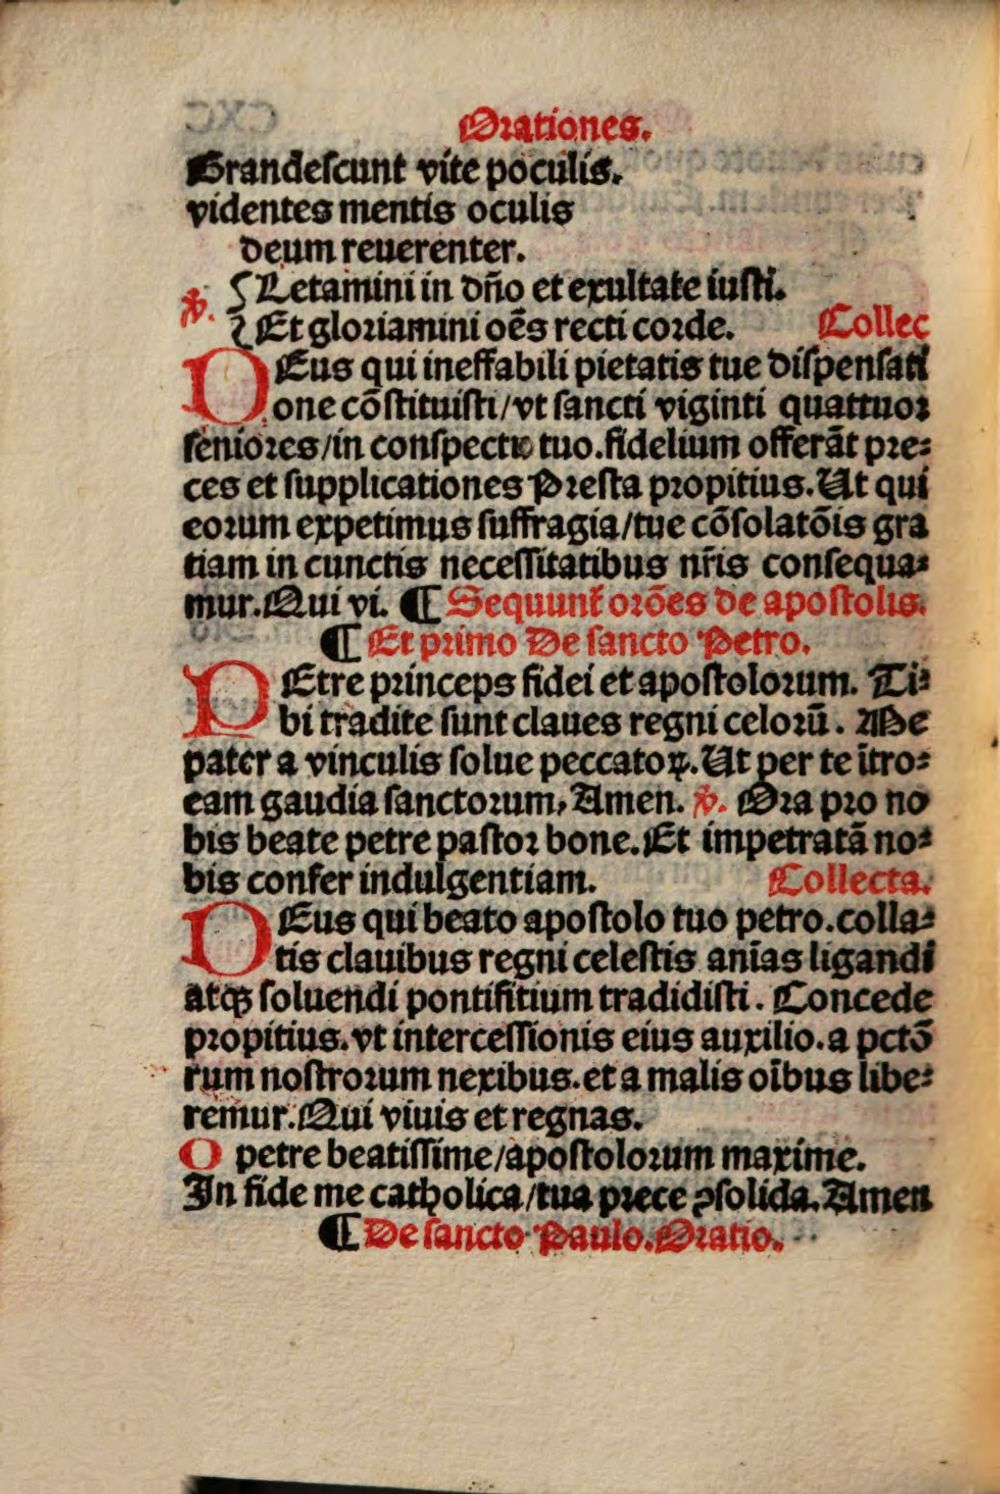 Orationes.
Grandescunt vite poculis.
videntes mentis oculis
deum reuerenter.
℣. Letamini in dño et exultate iusti.
Et gloriamini oēs recti corde. Collec
DEus qui ineffabili pietatis tue dispensati
one cōstituisti/vt sancti viginti quattuor
seniores/in conspectu tuo.fidelium offerāt pre⸗
ces et supplicationes Presta propitius.Ut qui
eorum expetimus suffragia/tue cōsolatōis gra
tiam in cunctis necessitatibus nr̄is consequa⸗
mur.Qui vi. ¶ Sequunt᷑ orōes de apostolis.
¶ Et primo De sancto Petro.
PEtre princeps fidei et apostolorum. Ti⸗
bi tradite sunt claues regni celorū. Me
pater a vinculis solue peccatoꝝ.Ut per te ītro⸗
eam gaudia sanctorum, Amen. ℣. Ora pro no
bis beate petre pastor bone.Et impetratā no⸗
bis confer indulgentiam. Collecta.
DEus qui beato apostolo tuo petro.colla⸗
tis clauibus regni celestis anīas ligandi
atqꝫ soluendi pontifitium tradidisti. Concede
propitius.vt intercessionis eius auxilio.a pctō
rum nostrorum nexibus.et a malis oībus libe⸗
remur.Qui viuis et regnas.
O petre beatissime/apostolorum maxime.
In fide me catholica/tua prece ꝯsolida.Amen
¶ De sancto Paulo.Oratio.